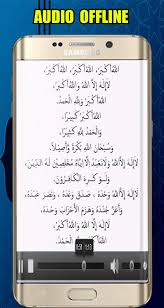 AUDIO OFFLINE
SAMSUNG
اللهُ أَكْبَرُ، اللهُ أَكْبَرُ، اللهُ أَكْبَرُ،
لَاإِلَهَ إِلَّا اللهُ وَاللهُ أَكْبَرُ،
اللهُ أَكْبَرُ وَلِلَّهِ الْحَمْدُ.
اللهُ أَكْبَرُ كَبِيْرًا
وَالْحَمْدُ لِلَّهِ كَثِيْرًا
وَسُبْحَانَ اللهِ بُكْرَةً وَأَصِيْلاً.
لَاإِلَهَ إِلَّا اللهُ وَلَانَعْبُدُ إِلَّا إِيَّاهُ مُخْلِصِيْنَ لَهُ الدِّيْنَ،
وَلَوْ كَرِهَ الْكَافِرُوْنَ.
لَاإِلَهَ إِلَّا اللهُ وَحْدَهُ، صَدَقَ وَعْدَهُ، وَنَصَرَ عَبْدَهُ،
وَأَعَزَّ جُنْدَهُ وَهَزَمَ الْأَحْزَابَ وَحْدَهُ،
لَاإِلَهَ إِلَّا اللهُ وَاللهُ أَكْبَرُ،